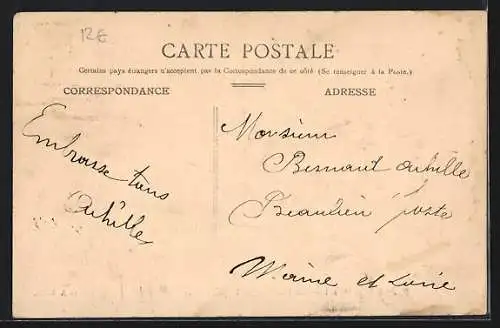 12E
CARTE POSTALE
Certains pays étrangers n'acceptent pas la Correspondance de ce côté (Se renseigner à la Poste.)
CORRESPONDANCE
ADRESSE
Embrasse tous
Achille
Monsieur
Bernaut Achille
Beaulieu poste
Maine et Loire